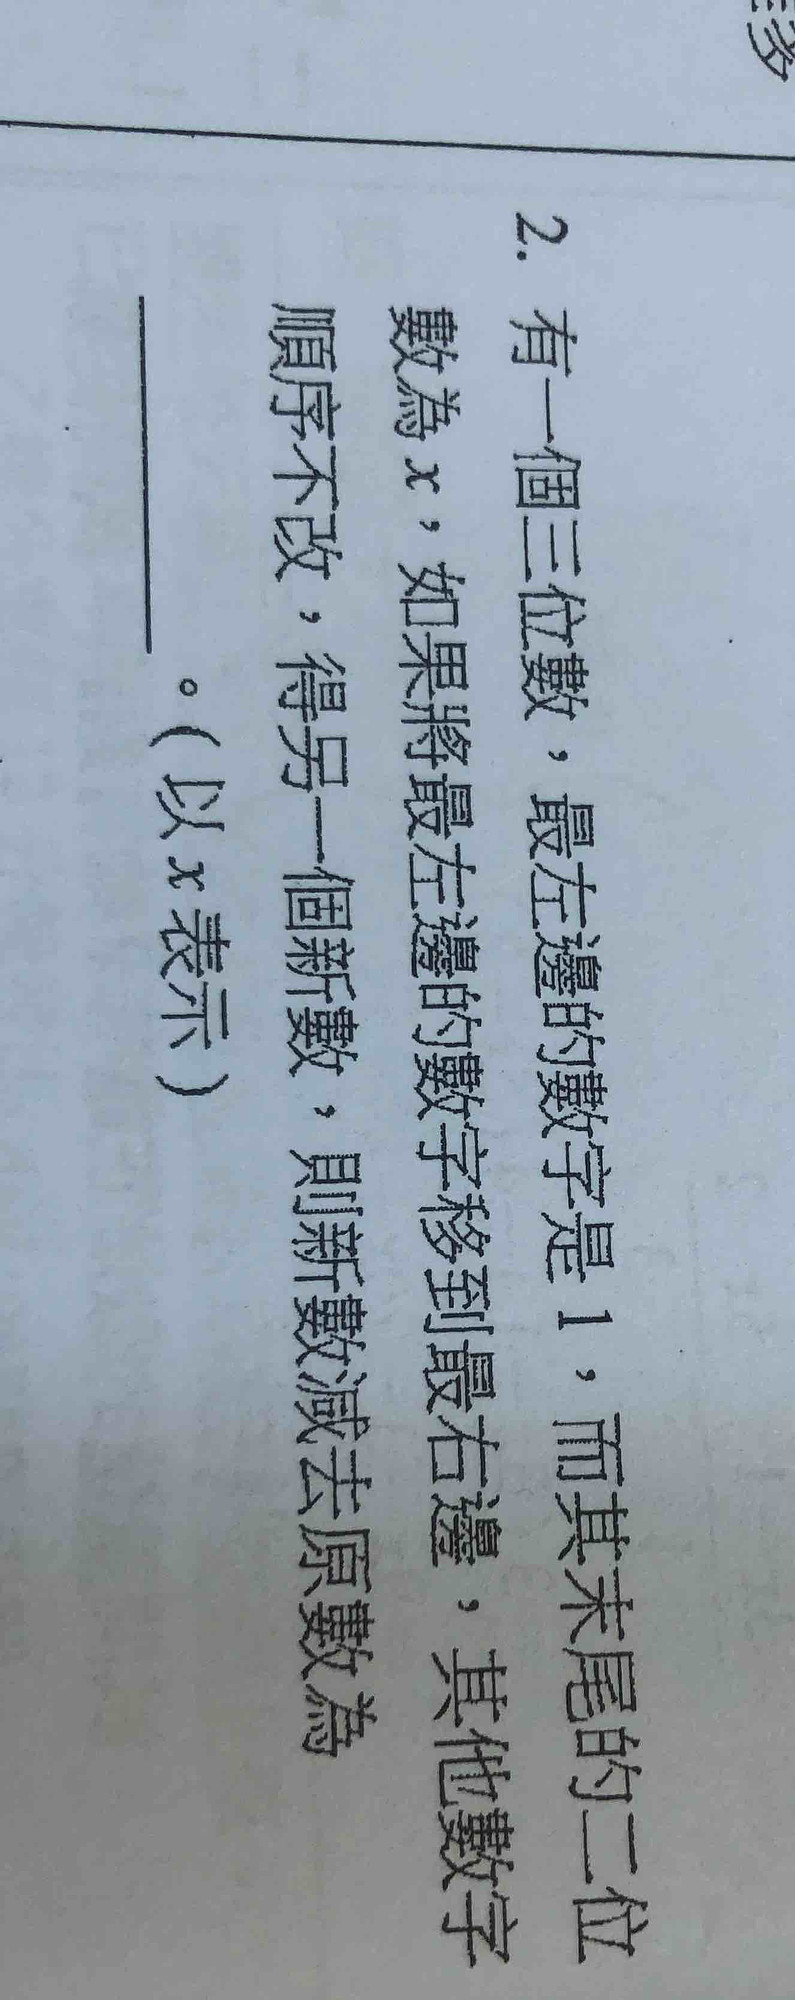 2. 有一個三位數，最左邊的數字是 1，而其末尾的二位
數為 x，如果將最左邊的數字移到最右邊，其他數字
順序不改，得另一個新數，則新數減去原數為
＿＿＿＿＿。（以 x 表示）